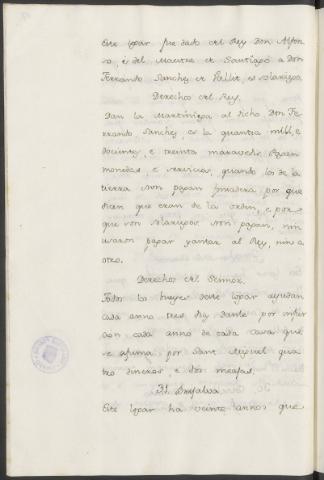 Este logar fue dado del Rey Don Alfon
so, è del Maestre de Santiago a Don
Ferrando Sanchez de Vallit, es solariego
Derechos del Rey.
Dan la Martiniega al dicho Don Fe
rrando Sanchez, es la quantia mill, e
docientos, e treinta maravedis. Pagan
monedas, e servicios, quando los de la
tierra non pagan fonsadera, por que
dicen que eran de la orden, e por
que son solariegos non pagan, nin
usaron pagar yantar al Rey, nin a
otro.
Derechos del Sennor.
Todos los huyos deste logar ayudan
cada anno tres dias dante por infur
cion cada anno de cada casa que
se afuma por Sant Miguel qua
tro dineros e dos meajas.
Este logar ha veinte annos que